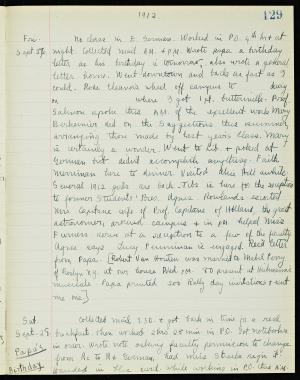 1912
129
Fri. No class in E. German. Worked in P.O. 4th hr. & at
Sept 27. night Collected mail A.M. & P.M. Wrote Papa a birthday
letter as his birthday is tomorrow, also wrote a general
letter home. Went downtown and back as fast as I
could. Rode Eleanor's wheel off campus to
on where I got 1 pt. buttermilk. Prof.
Salmon spoke this A.M. of the excellent work Mary
did on the Suggestions this summer,
arranging those made by last year's class. Mary
is certainly a wonder. Went to Lib. & poked at
German but didn't accomplish anything. Faith
Merriman here to dinner Visited Alice Hill awhile
Several 1912 girls are back. Tho's is here for the reception
to former Students' Pres. Agnes Rowlands escorted
Mrs Capitane wife of Prof. Capitane of Holland the great
astronomer, around campus & in P.M. helped Miss
Furness serve at a reception to a few of the faculty
Agnes says Lucy Penniman is engaged. Rec'd letter
from Papa. [Robert Van Houten was married to Mabel
of Roslyn N.Y. at our house Wed P.M. 80 present at
Papa printed 500 Rally day invitations & sent
me one]
Sat. Collected mail 7.30 & got back in time for a
Sept. 28. breakfast then worked 2 hrs 25 min in P.O. Put notebooks
Papa's in order. Wrote note asking faculty permission to change
Birthday from to German, had Miss sign it
in P.O. this A.M.